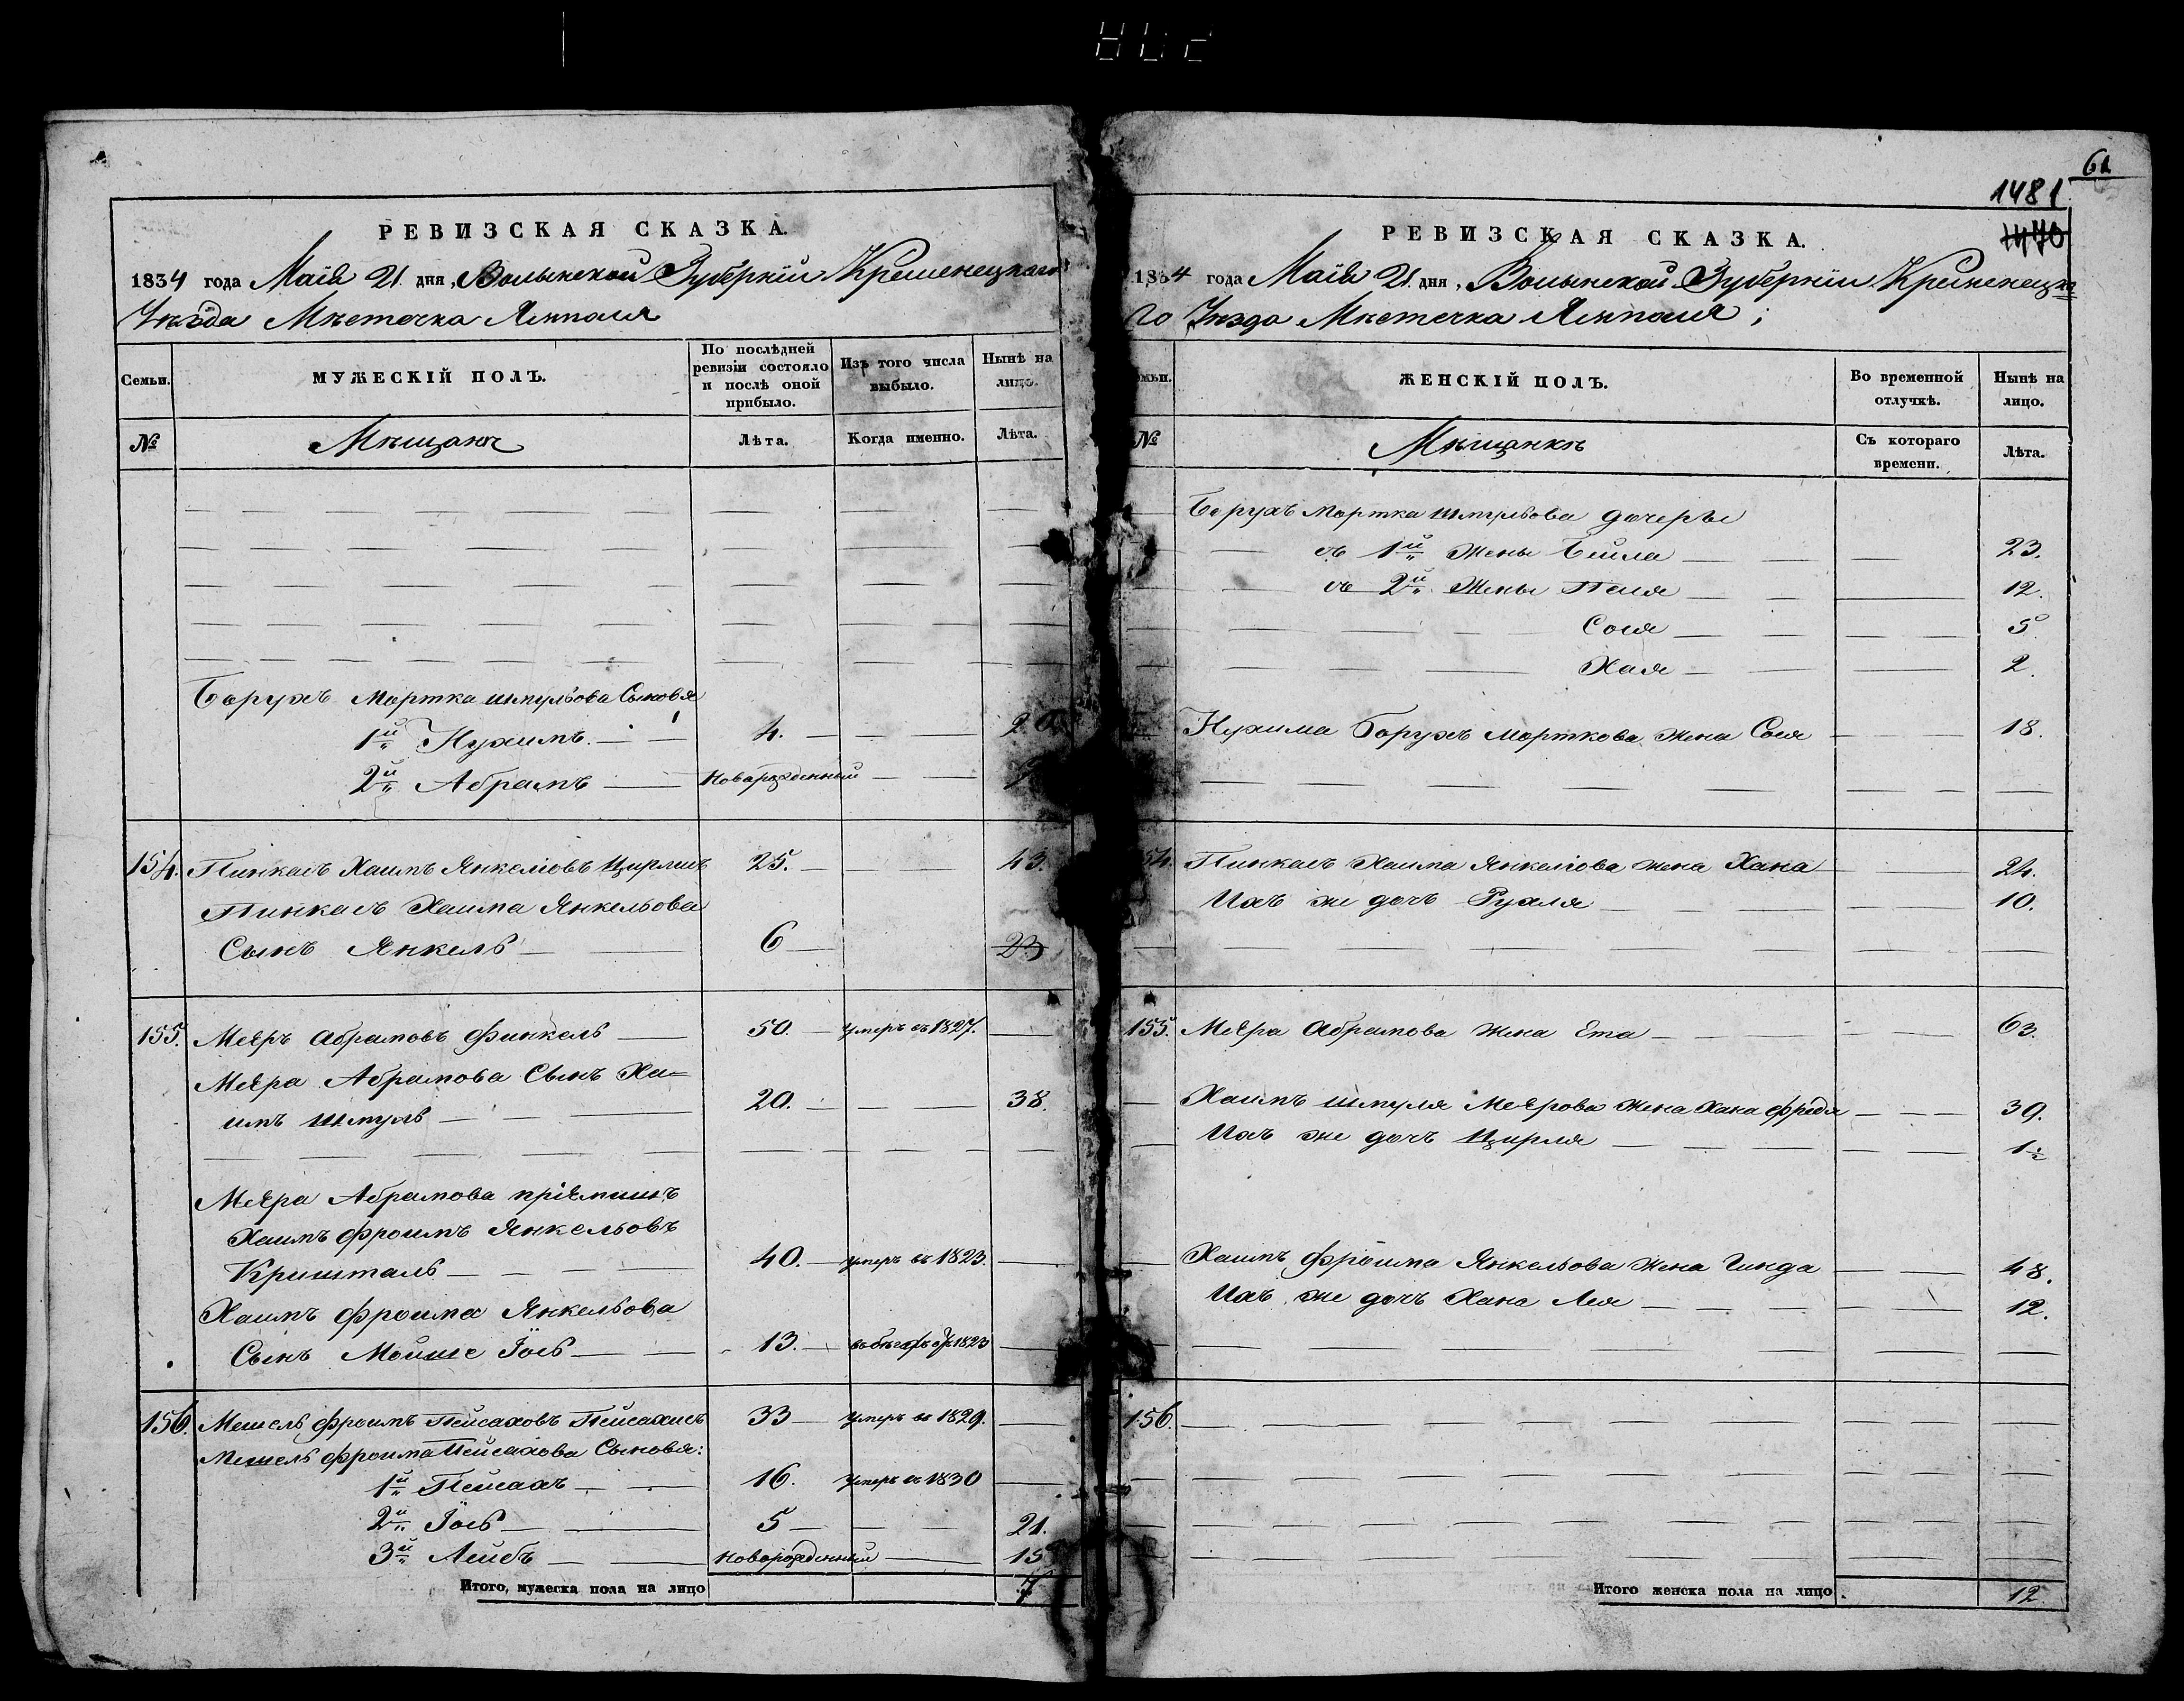 РЕВИЗСКАЯ СКАЗКА.
1834 года Маія 21 дня, Волынской Губерніи Кременецкаго
Уѣзда Мѣстечка Ямполя
Семьи.
МУЖЕСКІЙ ПОЛЪ.
По послѣдней ревизіи состояло и послѣ оной прибыло.
Изъ того числа выбыло.
Нынѣ на лицо.
№
Мѣщанъ
Лѣта.
Когда именно.
Лѣта.
Борухъ Мортка Шмульова Сыновя
1й Нухимъ 4. 20
2й Абрамъ Новорожденный
154. Пинкасъ Хаимъ Янкеліовъ Цирлинъ 25. 43.
Пинкасъ Хаима Янкельова
Сынъ Янкель 6 23
155. Меєръ Абрамовъ Финкель 50 умеръ въ 1827.
Меєра Абрамова Сынъ Ха=
имъ Шмуль 20. 38.
Меєра Абрамова пріємышъ
Хаимъ Фроимъ Янкельовъ
Кришталь 40. умеръ въ 1823.
Хаимъ Фроима Янкельова
Сынъ Мойше Іось 13. въ бѣгахъ 1823
156. Мешель Фроимъ Пейсаховъ Пейсахисъ 33 умеръ въ 1829.
Мешель Фроима Пейсахова Сыновя:
1й Пейсахъ 16. умеръ въ 1830
2й Іось 5 21.
3й Лейбъ Новорожденный 15
Итого, мужеска пола на лицо 7
61
1481
1470
РЕВИЗСКАЯ СКАЗКА.
1834 года Маія 21 дня, Волынской Губерніи Кременецка
го Уѣзда Мѣстечка Ямполя;
Семьи.
ЖЕНСКІЙ ПОЛЪ.
Во временной отлучкѣ.
Нынѣ на лицо.
№
Мѣщанкъ
Съ котораго времени.
Лѣта.
Борухъ Мортка Шмульова дочеры
съ 1й жены Бейла 23.
съ 2й Жены Песя 12.
Сося 5.
Хая 2.
Нухима Борухъ Морткова жена Сося 18.
154. Пинкасъ Хаима Янкеліова жена Хана 24.
Ихъ же дочъ Рухля 10.
155. Меєра Абрамова жена Ета 63.
Хаимъ Шмуля Меєрова жена Хана Фрейда 39.
Ихъ же дочъ Цирля 1½
Хаимъ Фроима Янкельова жена Гинда 48.
Ихъ же дочъ Хана Лея 12.
156.
Итого женска пола на лицо. 12.